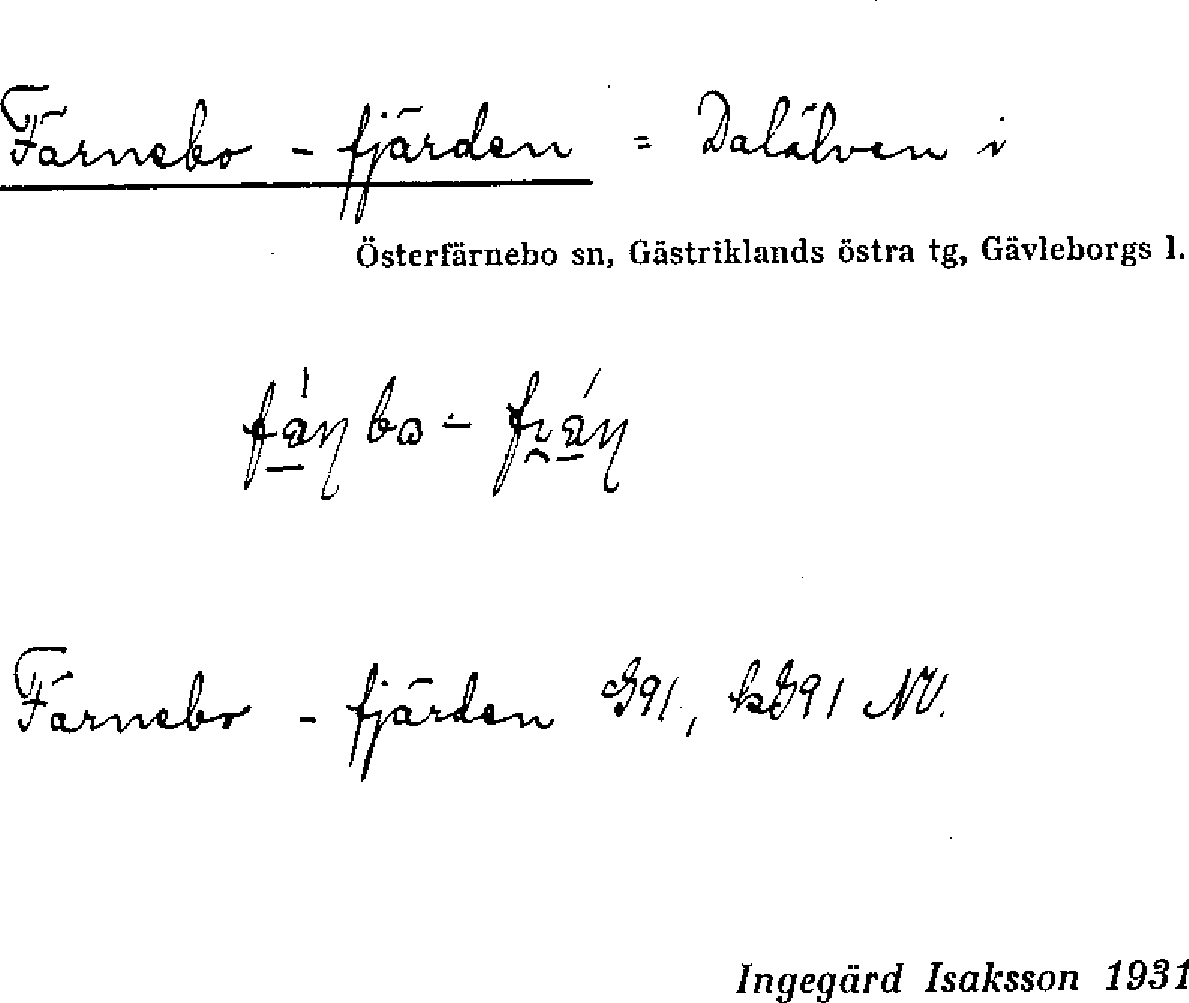 Färnebo - fjärden = Dalälven i
Österfärnebo sn, Gästriklands östra tg, Gävleborgs l.
Färnebo - fjärden G91, kG91 NV.
Ingegärd Isaksson 1931